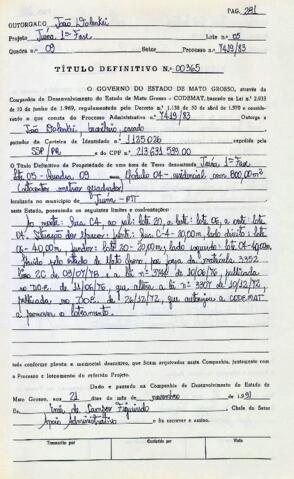 PAG. 281
OUTORGADO João Dolenkei
PROJETO Juína, 1ª Fase Lote n.º 05
Quadra n.º 09 Setor Processo n.º 7419/83
TÍTULO DEFINITIVO N.º 00365
O GOVERNO DO ESTADO DE MATO GROSSO, através da
Companhia de Desenvolvimento do Estado de Mato Grosso - CODEMAT, baseado na Lei n.º 2.933
30 de junho de 1.969, regulamentada pelo Decreto n.º 1.138 de 30 de abril de 1.970 e considerando
o que consta do Processo Administrativo n.º 7419/83 Outorga a
João brasileiro, casado
portador da Carteira de Identidade n.º 1125026
expedida por SSP/PR e do CPF n.º 213.631.599.00
O Título Definitivo de Propriedade de uma área de Terra denominada Juína, 1ª Fase
Lote 05 - Quadra 09 Módulo 04 - residencial com 800,00m²
(oitocentos metros quadrados)
localizada no município de Juína - MT
neste Estado, possuindo os seguintes limites e confrontações:
Ao norte: Rua C4, ao sul: lote 20, a leste: lote 06, a oeste: lote
04. Situação dos Marcos: frente: Rua C-4 - 20,00m, lado direito: lote
06 - 40,00m, fundos: lote 20 - 20,00m, lado esquerdo: lote 04-40,00m.
pelo Estado de Mato Grosso, por força da matrícula 3352
Livro 2C de 09/07/76 e a Lei nº 3744 de 10/06/76, publicada
no D.O.E. de 11/06/76, que altera a Lei nº 3307 de 18/12/72,
publicada no D.O.E. de 26/12/72, que autorizou a CODEMAT
a promover o loteamento.
tudo conforme planta e memorial descritivo, que ficam arquivados nesta Companhia, juntamente com
o Processo e loteamento do referido Projeto.
Dado e passado na Companhia de Desenvolvimento do Estado de
Mato Grosso, aos 21 dias do mês de novembro de 1.991
Eu, Chefe do Setor
Apoio Administrativo o fiz escrever e assino.
Transcrito por Conferido por Visto